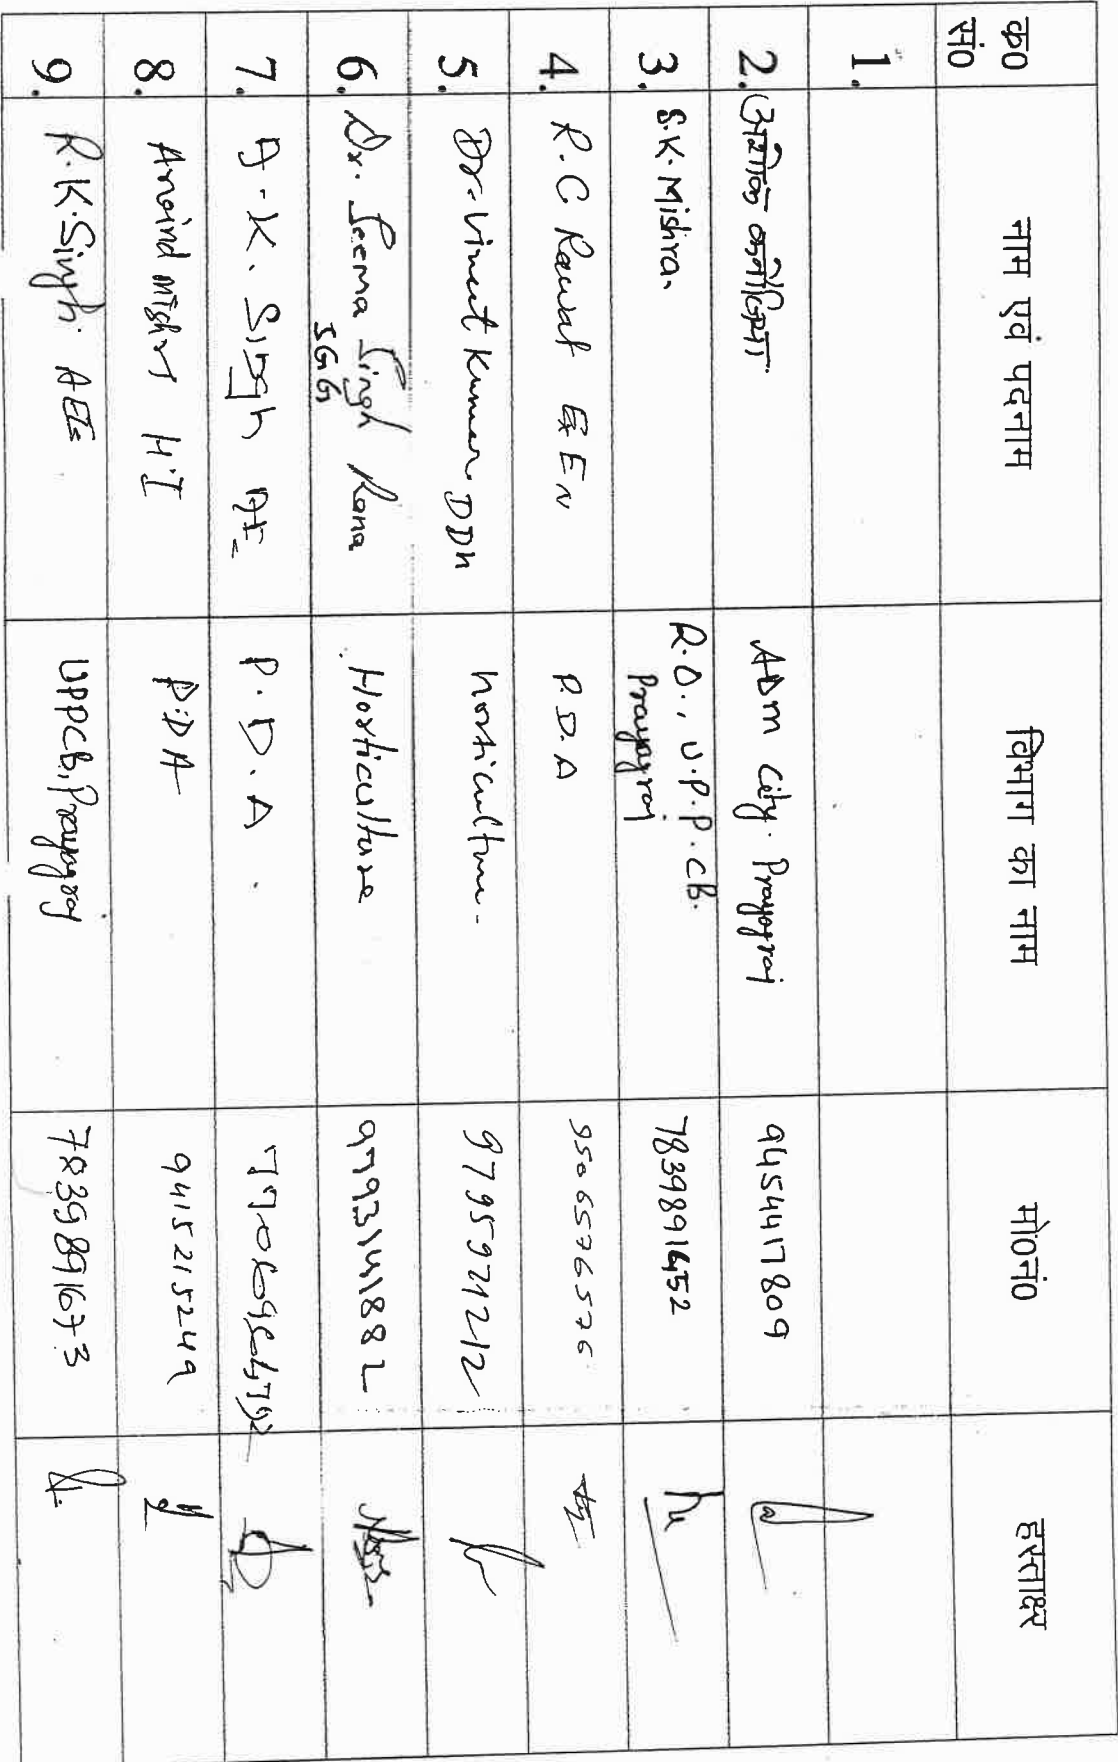 क0 सं0 नाम एवं पदनाम विभाग का नाम मो0नं0 हस्ताक्षर
1.
2. अशोक कनौजिया ADM City Prayagraj 9454417809
3. S.K. Mishra R.O., U.P.P.C.B. Prayagraj 7839891652
4. R.C Rawat Ex EN P.D.A 9506576576
5. Dr. Vineet Kumar DDH horticulture 9795971212
6. Dr. Seema Singh Rana SGG Horticulture 9793141882
7. A.K. Singh AE P.D.A.
8. Arvind Mishra HI P.DA 9415215249
9. R.K. Singh AEE UPPCB, Prayagraj 7839891673